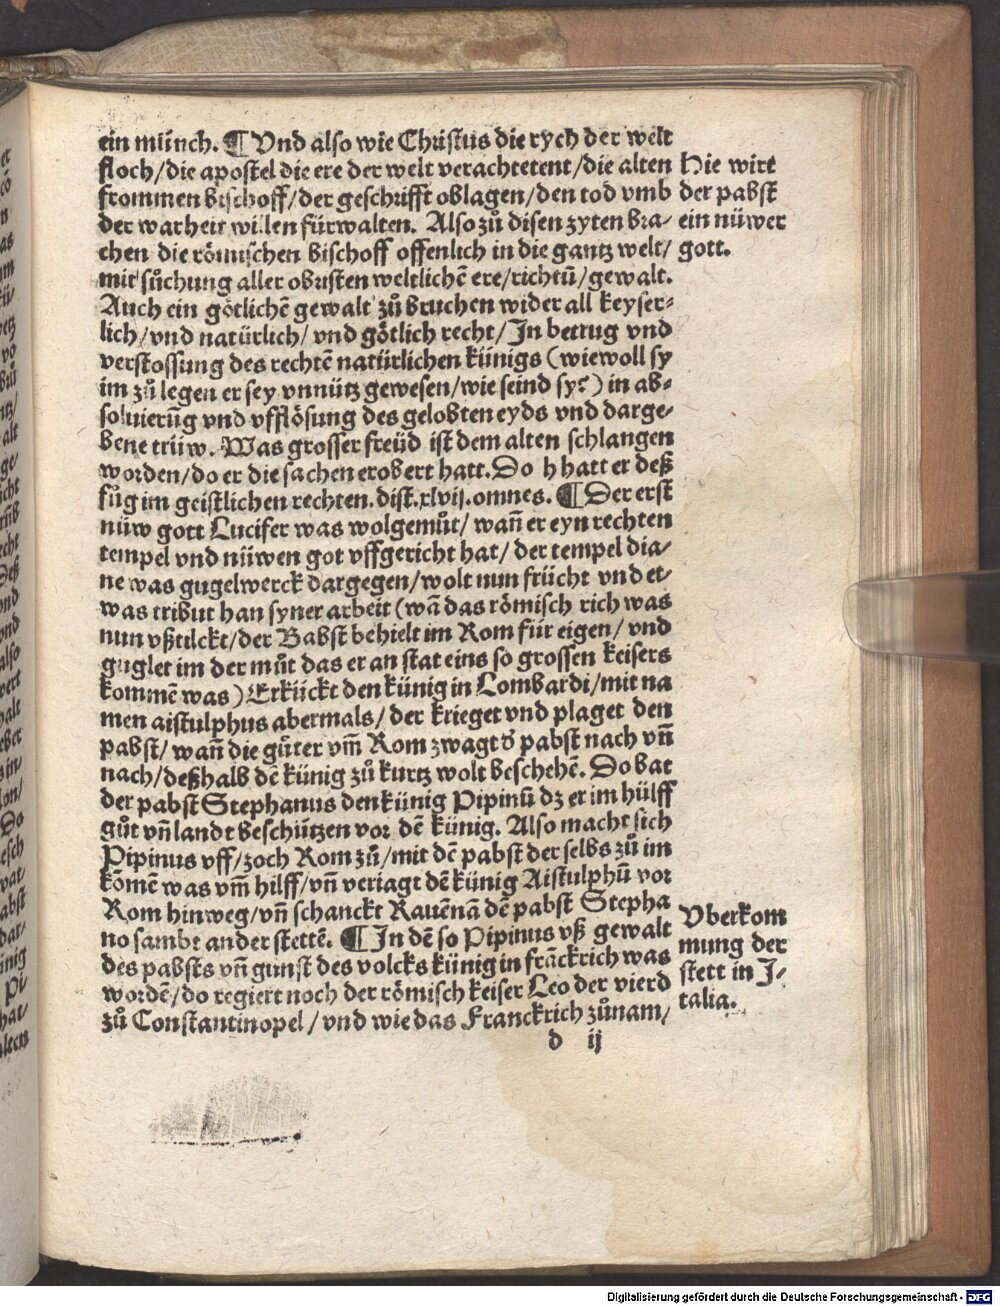 ein münch. ¶ Vnd also wie Christus die rych der welt
floch/die apostel die ere der welt verachtetent/die alten
frommen bischoff/der geschrifft oblagen/den tod vmb
der warheit willen fürwalten. Also zů disen zyten bra⸗
chen die römischen bischoff offenlich in die gantz welt/
mit sůchung aller obristen weltlichē ere/richtū/gewalt.
Auch ein götlichē gewalt zů bruchen wider all keyser⸗
lich/vnd natürlich/vnd götlich recht/In betrug vnd
verstossung des rechtē natürlichen künigs (wiewoll sy
im zů legen er sey vnnütz gewesen/wie seind sy?) in ab⸗
soluierūg vnd vfflösung des gelobten eyds vnd darge⸗
bene trüw. Was grosser freüd ist dem alten schlangen
worden/do er die sachen erobert hatt. Do h hatt er deß
fůg im geistlichen rechten. dist. xlvij. omnes. ¶ Der erst
nüw gott Lucifer was wolgemůt/wañ er eyn rechten
tempel vnd nüwen got vffgericht hat/der tempel dia⸗
ne was gugelwerck dargegen/wolt nun frücht vnd et⸗
was tribut han syner arbeit (wā das römisch rich was
nun vßtilckt/der Babst behielt im Rom für eigen/vnd
guglet im der můt das er an stat eins so grossen keisers
kommē was) Erkückt den künig in Lombardi/mit na
men aistulphus abermals/der krieget vnd plaget den
pabst/wañ die gůter vm̄ Rom zwagt d̕ pabst nach vñ
nach/deßhalb dē künig zů kurtz wolt beschehē. Do bat
der pabst Stephanus den künig Pipinū dz er im hülff
gůt vñ landt beschützen vor dē künig. Also macht sich
Pipinus vff/zoch Rom zů/mit dē pabst der selbs zů im
kōmē was vm̄ hilff/vñ veriagt dē künig Aistulphū vor
Rom hinweg/vñ schanckt Rauēnā dē pabst Stepha
no sambt ander stettē. ¶ In dē so Pipinus vß gewalt
des pabsts vñ gunst des volcks künig in frāckrich was
wordē/do regiert noch der römisch keiser Leo der vierd
zů Constantinopel/vnd wie das Franckrich zůnam/
d ij
Hie wirt
der pabst
ein nüwer
gott.
Vberkom
mung der
stett in J⸗
talia.
Digitalisierung gefördert durch die Deutsche Forschungsgemeinschaft - DFG